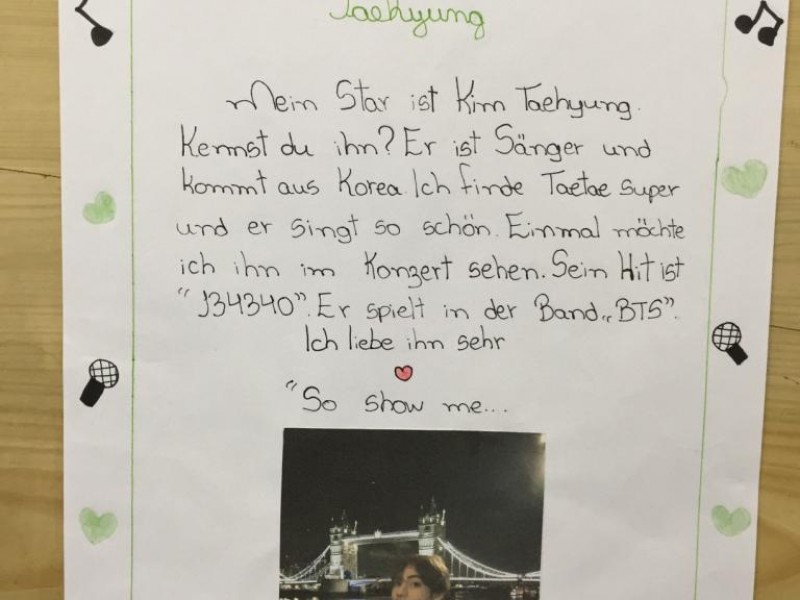 Taehyung
Mein Star ist Kim Taehyung.
Kennst du ihn? Er ist Sänger und
kommt aus Korea. Ich finde Taetae super
und er singt so schön. Einmal möchte
ich ihn im Konzert sehen. Sein Hit ist
"134340". Er spielt in der Band „BTS".
Ich liebe ihn sehr
"So show me...